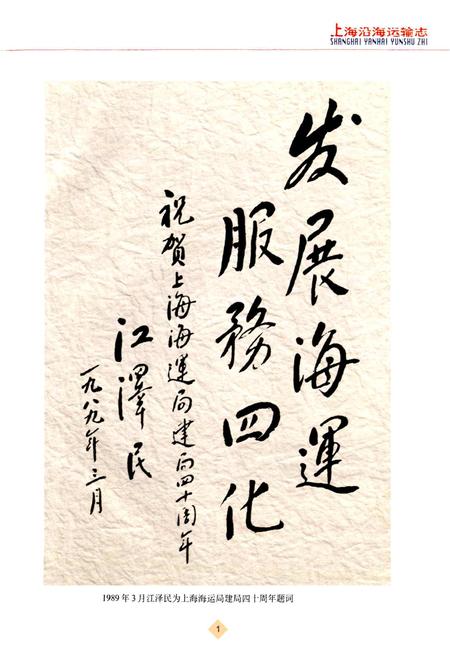 上海沿海运输志
SHANGHAI YANHAI YUNSHU ZHI
发展海運
服務四化
祝賀上海海運局建局四十周年
江澤民
一九八九年三月
1989年3月江泽民为上海海运局建局四十周年题词
1